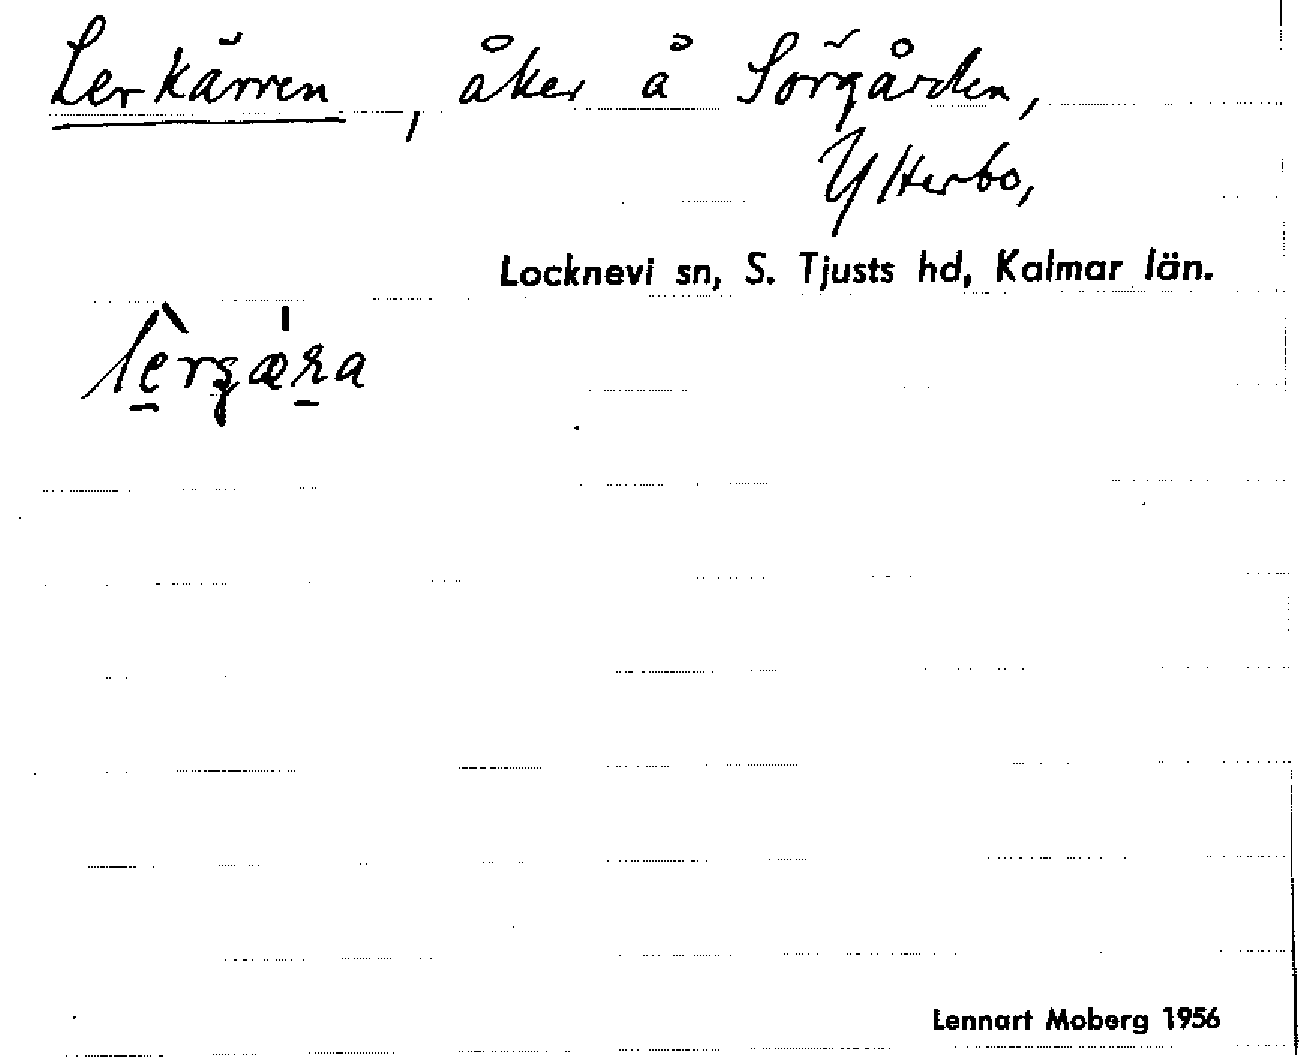 Lerkärren, åker å Sörgården,
Ytterbo,
Locknevi sn, S. Tjusts hd, Kalmar län.
Lennart Moberg 1956